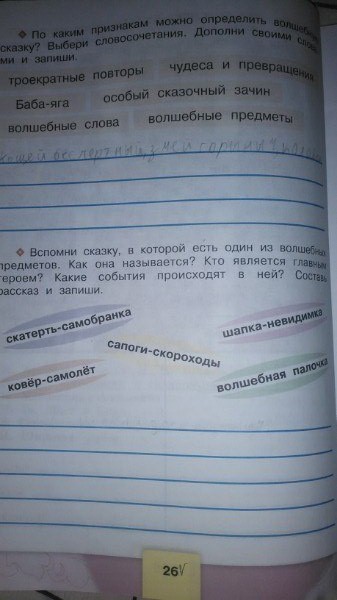 По каким признакам можно определить волшебную
сказку? Выбери словосочетания. Дополни своими слова-
ми и запиши.
троекратные повторы чудеса и превращения
Баба-яга особый сказочный зачин
волшебные слова волшебные предметы
Вспомни сказку, в которой есть один из волшебных
предметов. Как она называется? Кто является главным
героем? Какие события происходят в ней? Составь
рассказ и запиши.
скатерть-самобранка шапка-невидимка
сапоги-скороходы
ковёр-самолёт волшебная палочка
26